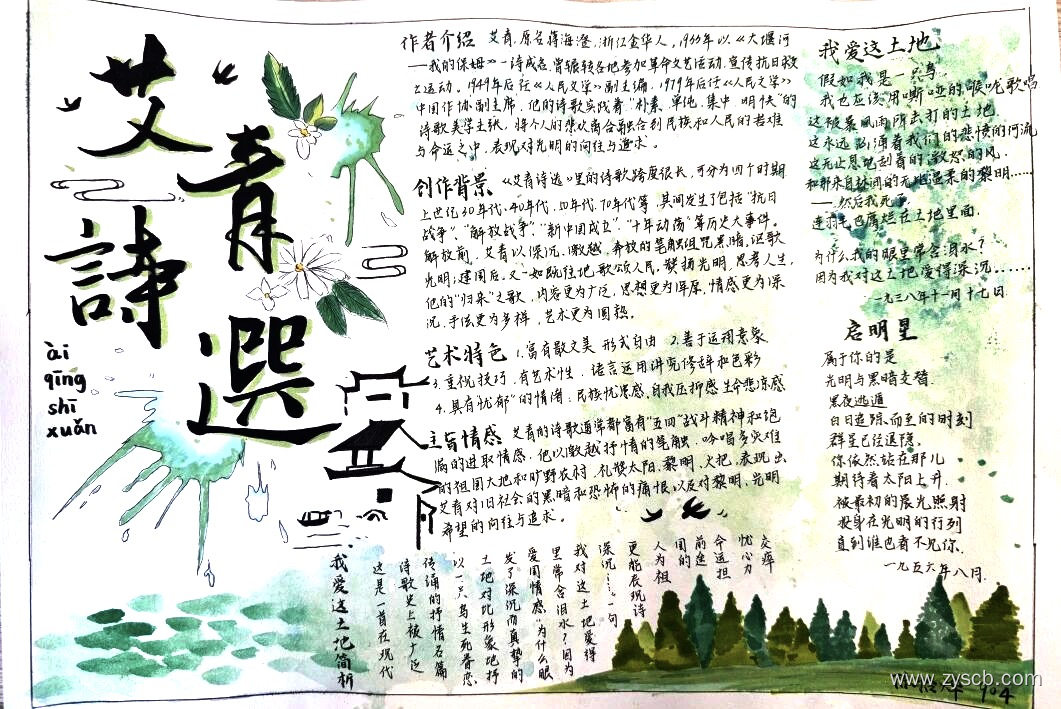 艾青詩選
ài
qīng
shī
xuǎn
作者介绍 艾青,原名蒋海澄,浙江金华人,1933年以《大堰河
——我的保姆》一诗成名,曾辗转各地参加革命文艺活动,宣传抗日救
亡运动。1949年后任《人民文学》副主编,1979年后任《人民文学》
中国作协副主席,他的诗歌实践着"朴素、单纯、集中、明快"的
诗歌美学主张,将个人的悲欢离合融合到民族和人民的苦难
与命运之中,表现对光明的向往与追求。
创作背景 《艾青诗选》里的诗歌跨度很长,可分为四个时期
上世纪30年代、40年代、50年代、70年代等,其间发生了包括"抗日
战争"、"解放战争"、"新中国成立"、"十年动荡"等历史大事件。
解放前,艾青以深沉、激越、奔放的笔触诅咒黑暗,讴歌
光明;建国后,又一如既往地歌颂人民,赞扬光明,思考人生,
他的"归来"之歌,内容更为广泛,思想更为浑厚,情感更为深
沉,手法更为多样,艺术更为圆熟。
艺术特色 1.富有散文美 形式自由 2.善于运用意象
3.主观技巧,有艺术性,语言运用讲究修辞和色彩
4.具有忧郁"的情绪:民族忧患感,自我压抑感 生命悲凉感
主旨情感 艾青的诗歌通常都富有"五四"战斗精神和饱
满的进取情感,他以激越抒情的笔触,吟唱多灾难
的祖国大地和旷野农村,礼赞太阳,黎明,火把,表现出
艾青对旧社会的黑暗和恐怖的痛恨,以及对黎明、光明
希望的向往与追求。
我爱这土地
假如我是一只鸟
我也应该用嘶哑的喉咙歌唱
这被暴风雨所击打的土地
这永远汹涌着我们的悲愤的河流
这无止息地刮着的激怒的风,
和那来自林间的无比温柔的黎明……
——然后我死了,
连羽毛也腐烂在土地里面,
为什么我的眼里常含泪水?
因为我对这土地爱得深沉……
一九三八年十一月十七日
启明星
属于你的是
光明与黑暗交替
黑夜逃遁
白日追踪而至的时刻
群星已经退隐,
你依然站在那儿
期待着太阳上升
被最初的晨光照射
投身在光明的行列
直到谁也看不见你,
一九五六年八月.
交瘁
忧心力
命运担
前途
国的
人为祖
更能表现诗
深沉……一句
我对这土地爱得
里常含泪水?因为
爱国情感"为什么眼
发了深沉而真挚的
土地对比形象地抒
以一只鸟生死眷恋
传诵的抒情名篇
诗歌史上被广泛
这是一首在现代
我爱这土地简析
904
www.zyscb.com